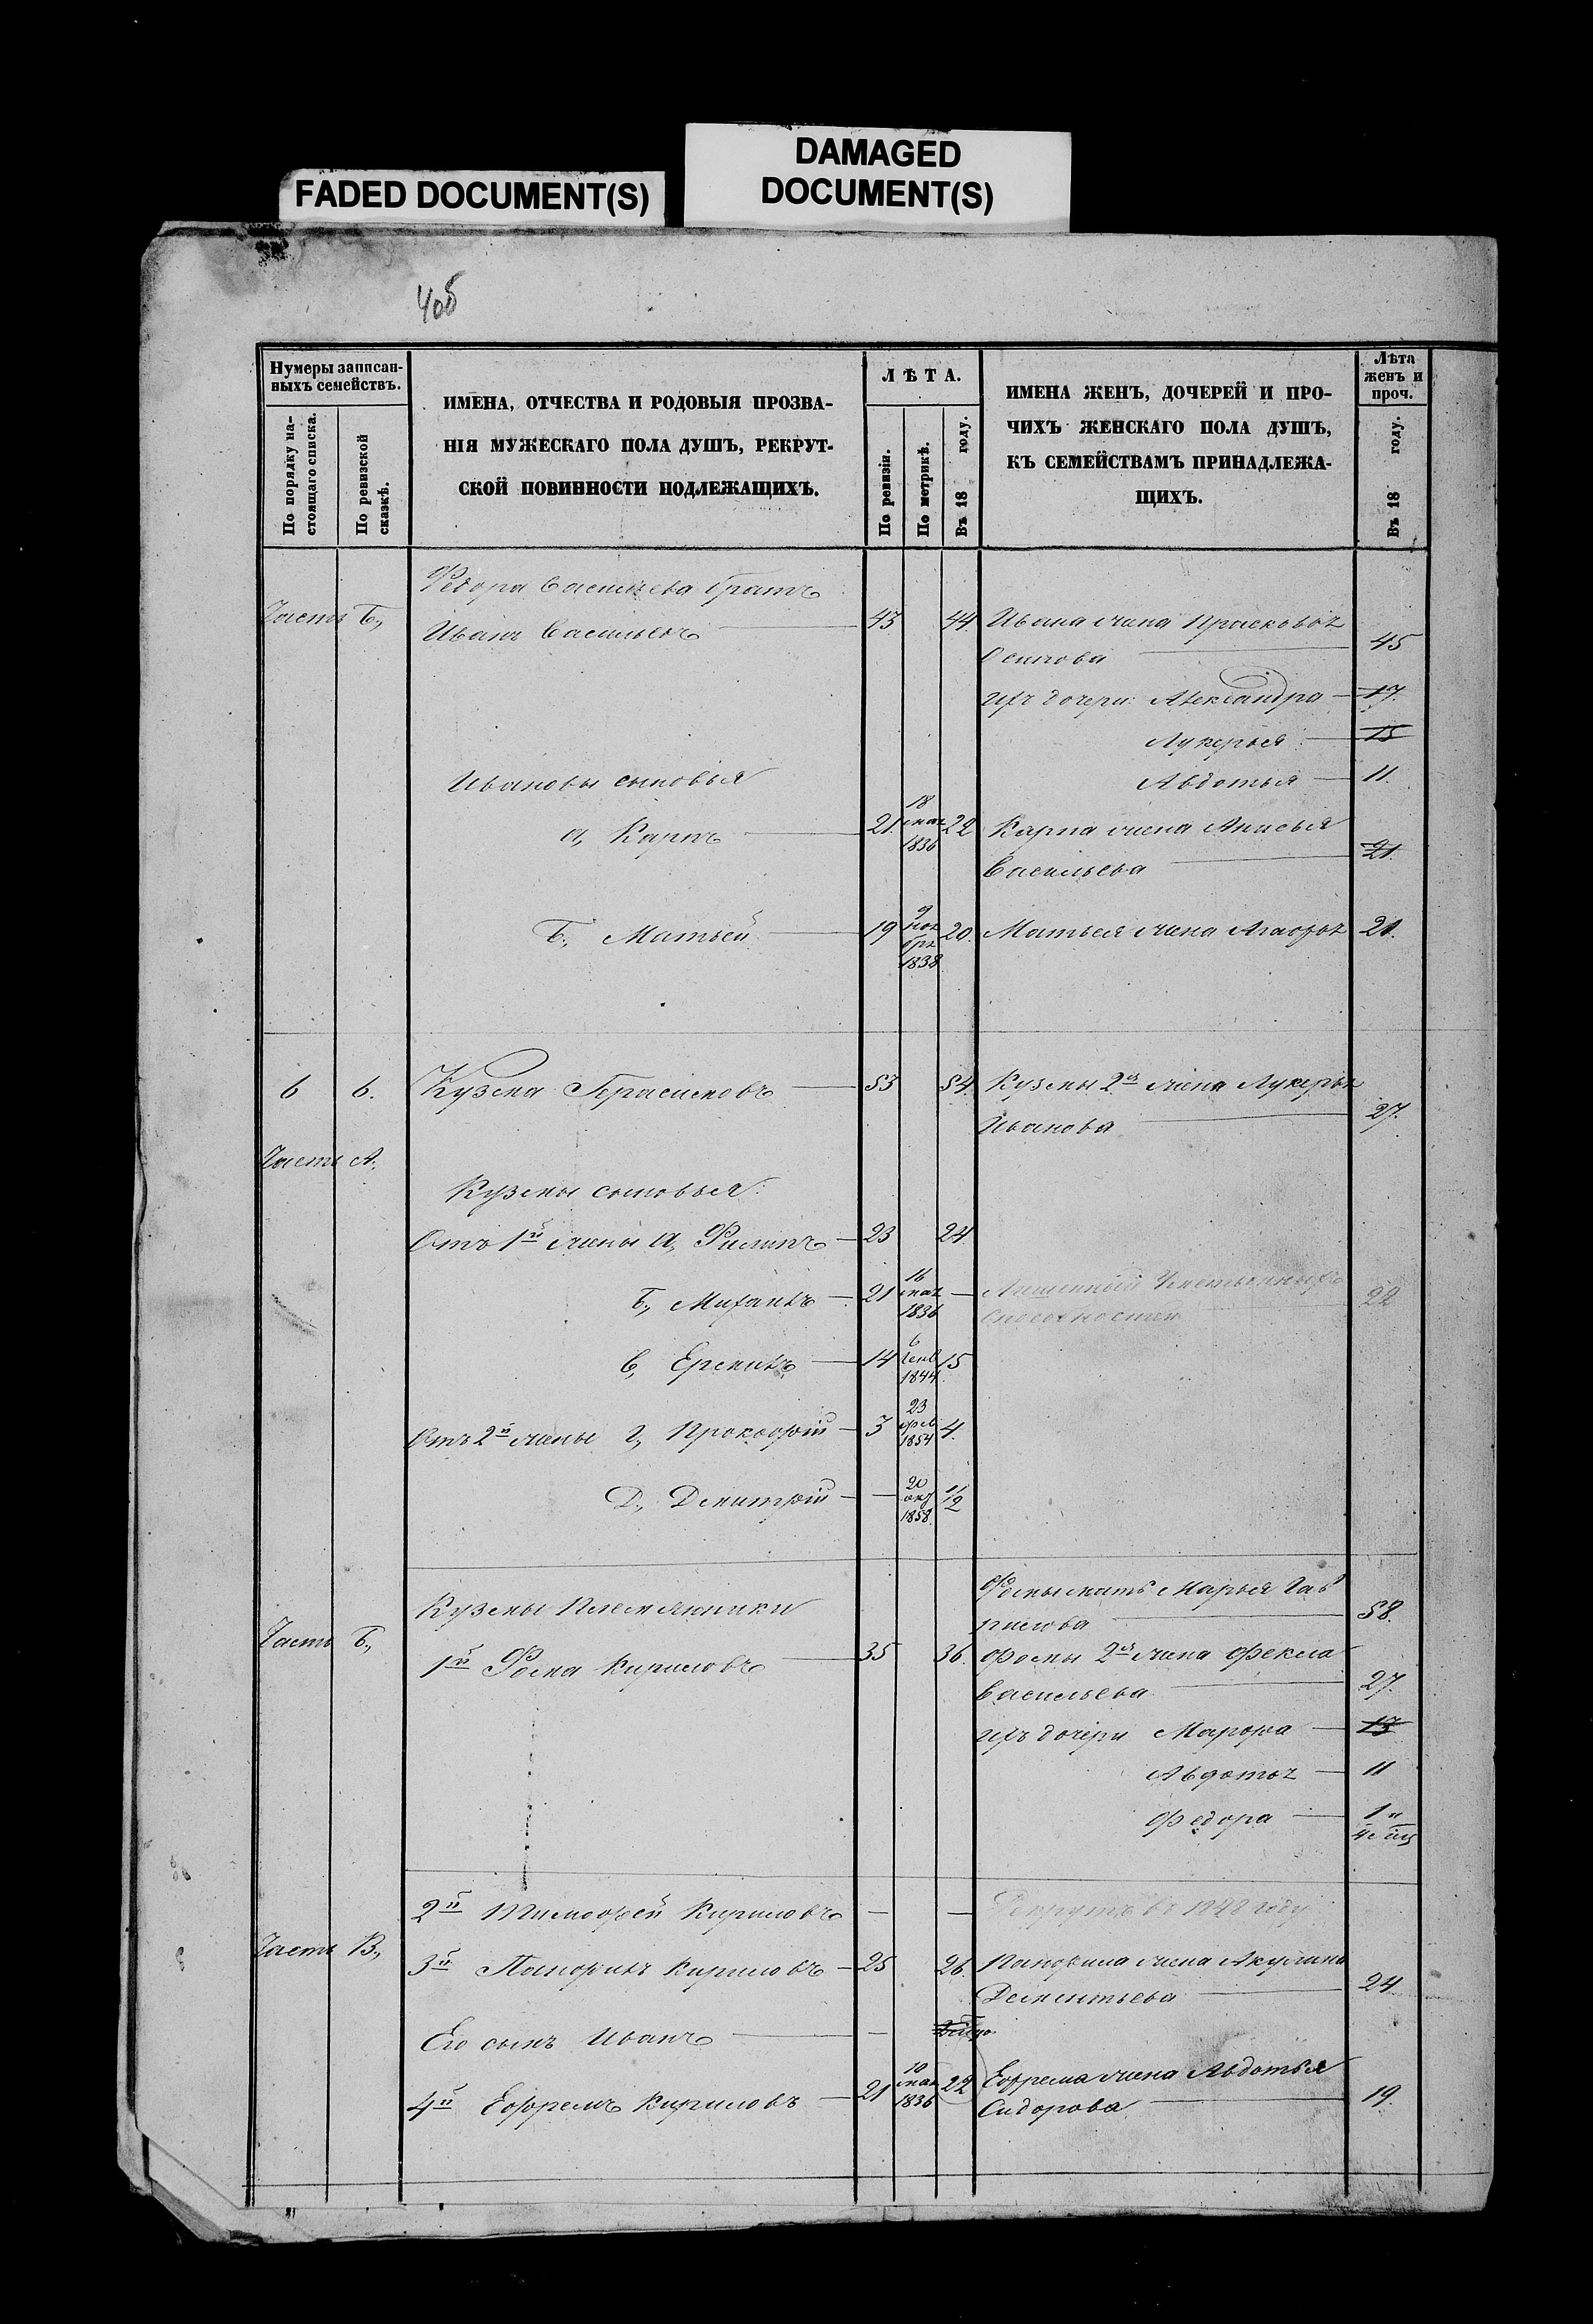 FADED DOCUMENT(S)
DAMAGED
DOCUMENT(S)
40б
Нумеры записан-
ныхъ семействъ.
По порядку на-
стоящаго списка.
По ревизской
сказкѣ.
ИМЕНА, ОТЧЕСТВА И РОДОВЫЯ ПРОЗВА-
НІЯ МУЖЕСКАГО ПОЛА ДУШЪ, РЕКРУТ-
СКОЙ ПОВИННОСТИ ПОДЛЕЖАЩИХЪ.
ЛѢТА.
По ревизіи.
По метрикѣ.
Въ 18 году.
ИМЕНА ЖЕНЪ, ДОЧЕРЕЙ И ПРО-
ЧИХЪ ЖЕНСКАГО ПОЛА ДУШЪ,
КЪ СЕМЕЙСТВАМЪ ПРИНАДЛЕЖА-
ЩИХЪ.
Лѣта
женъ и
проч.
Въ 18 году.
Федора Васильева братъ
Часть Б., Иванъ Васильевъ 43 44. Ивана жена Прасковья
Осипова 45
Ихъ дочери: Александра 17.
Лукерья 15
Ивановы сыновья Авдотья 11.
а, Карпъ 21. 18 мая 1836 22 Карпа жена Анисья
Васильева 21.
Б., Матвей 19 9 ноября 1838 20. Матвея жена Агафья 21.
6 6. Кузьма Герасимовъ 53 54. Кузьмы 2я жена Лукерья
Иванова 27.
Часть А.
Кузьмы сыновья:
Отъ 1й жены а, Филипъ 23 24
Б., Михаилъ 21 16 мая 1836 — Лишенный умственныхъ
способностей 22
в, Еремилъ 14 6 генв 1844 15
Отъ 2й жены г., Прокофiй 3 23 фев 1854 4.
Д., Димитрiй — 20 окт 1858
Фомы мать Марья Гав
Кузьмы племянники рилова 58.
Часть Б., 1й Фома Кириловъ 35 36. Фомы 2я жена Фекла
Васильева 27.
Ихъ дочери Марфа 13
Авдотья 11
Федора 1 и
4 мѣц
2й Тимофей Кириловъ — — Рекрутъ въ 1848 году
Часть В., 3й Панфилъ Кириловъ 25 26. Панфила жена Акулина
Дементьева 24
Его сынъ Иванъ —
4й Ефремъ Кириловъ 21 10 мая 1836 22 Ефрема жена Авдотья
Сидорова 19.